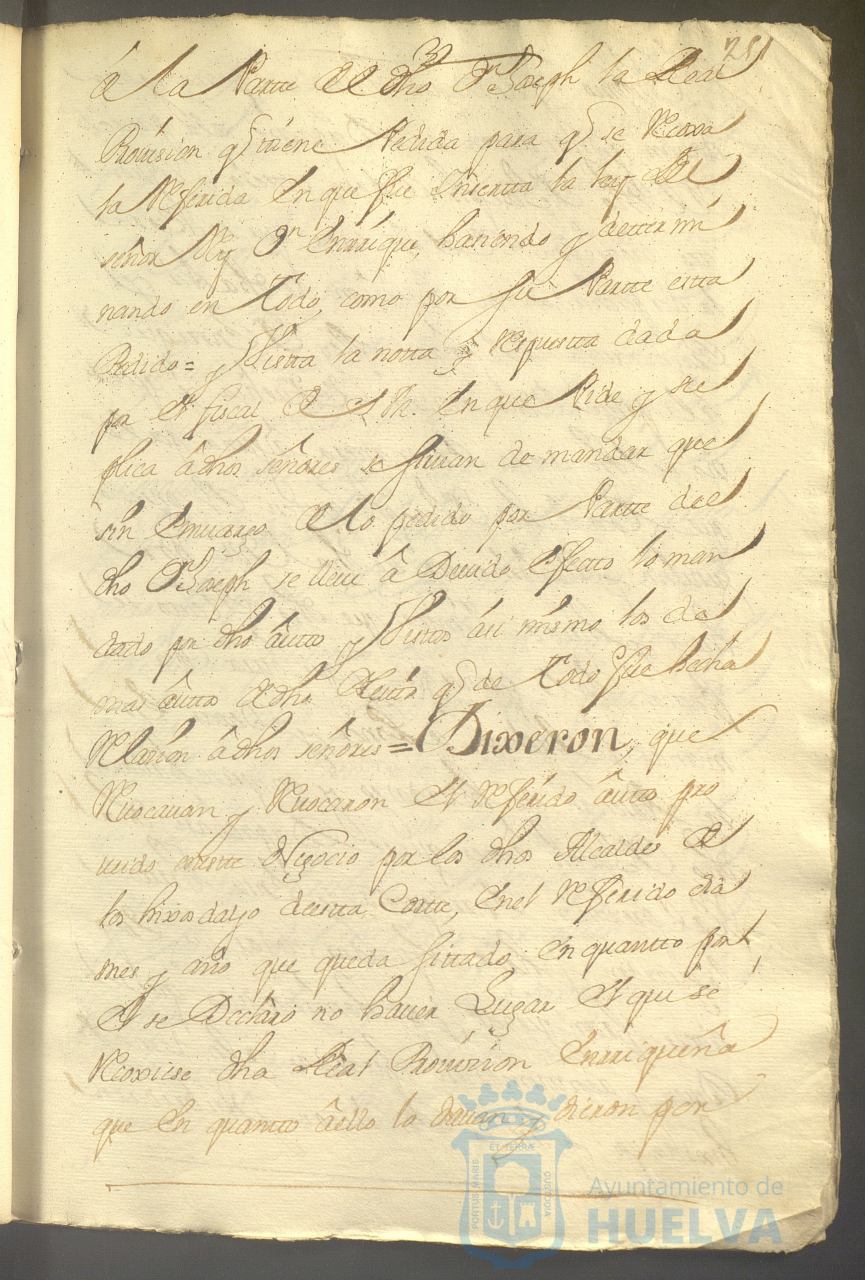 32
251
â la Partte de dho Dn Joseph la Real
Provision q̃ tiene Pedida para q̃ se Recoxa
la Referida en que fue Inserta la ley del
señor Rey Dn Enrrique, haciendo y dettermi
nando en Todo, como por su Partte estta
Pedido = y Vistta la notta y Respuestta dada
por el fiscal de S. M. en que Pide y su
plica â dhos señores se siruan de mandar que
sin Embargo de lo pedido por Partte del
dho Dn Joseph se lleue â Deuido efecto lo man
dado por dho âutto y Vistos ási mismo los de
mas âuttos de dho Pleitto q̃ de Todo fue hecha
Relazion â dhos señores = Dixeron, que
Reuocauan y Reuocaron el Referido âutto pro
ueido en estte Negocio por los dhos Alcaldes de
los hixosdalgo de estta Cortte, en el Referido dia
mes y año que queda sittado en quantto por
el se Declaro no hauer Lugar el que se
Recoxiese dha Real Provision Enrriqueña
que en quantto âello lo dauan y dieron por
Ayuntamiento de
HUELVA
PORTUS MARIS
ET TERRÆ
CUSTODIA